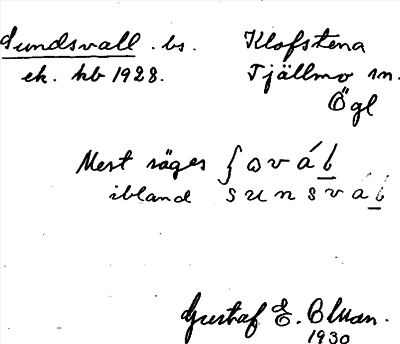 Sundsvall. bs. Klofstena
ek. hb 1928. Tjällmo sn.
Ögl
Mest säges
ibland sunsváb
Gustaf E.
1930